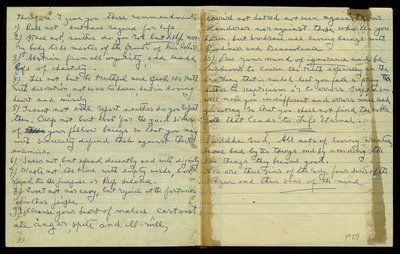 Therefore I give you these commandments
1) Kill not but have regard for life
2) Steal not, neither do you rob but help every-
body to be master of the fruits of his labor.
3) Abstain from all impurity and lead a
life of chastity.
4) Lie not but be truthful and speak the truth
with discretion not so as to harm but in loving
heart and wisely.
5) Invent not evil report neither do you repeat
them. Carp not but look for the good sides
of your fellow beings so that you may
with sincerity defend them against their
enemies.
6) Swear not but speak decently and with dignity
7) Waste not the time with empty words, but
speak to the purpose or keep silence.
8) Covet not nor envy, but rejoice at the fortunes
of other people.
9) Cleanse your heart of malice cast out
all anger spite and ill-will,
cherish not hatred not even against your
slanderers nor against those who do you
harm but embrace all living beings with
Kindness and Benevolence.
10) Free your mind of ignorance and be
anxious to learn the truth especially in the
one thing that is needed lest you fall a prey
either to scepticism or to errors. Scepticism
will make you indifferent and errors will lead
you astray so that you shall not find the noble
path that leads to Life Eternal.
Buddha said, All acts of living creatures
become bad by ten things and by avoiding the
ten things they become good.
There are three sins of the body, four sins of the
tongue and three sins of the mind